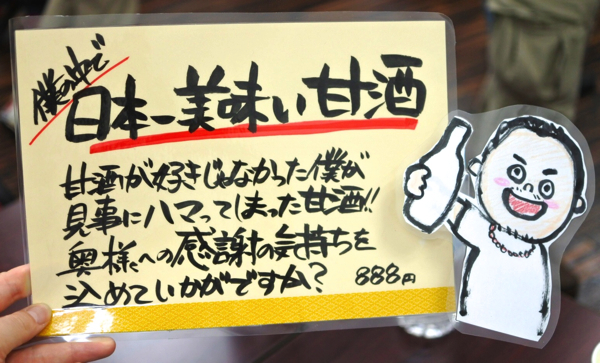 僕の中で
日本一美味い甘酒
甘酒が好きじゃなかった僕が
見事にハマってしまった甘酒!!
奥様への感謝の気持ちを
込めていかがですか?
888円